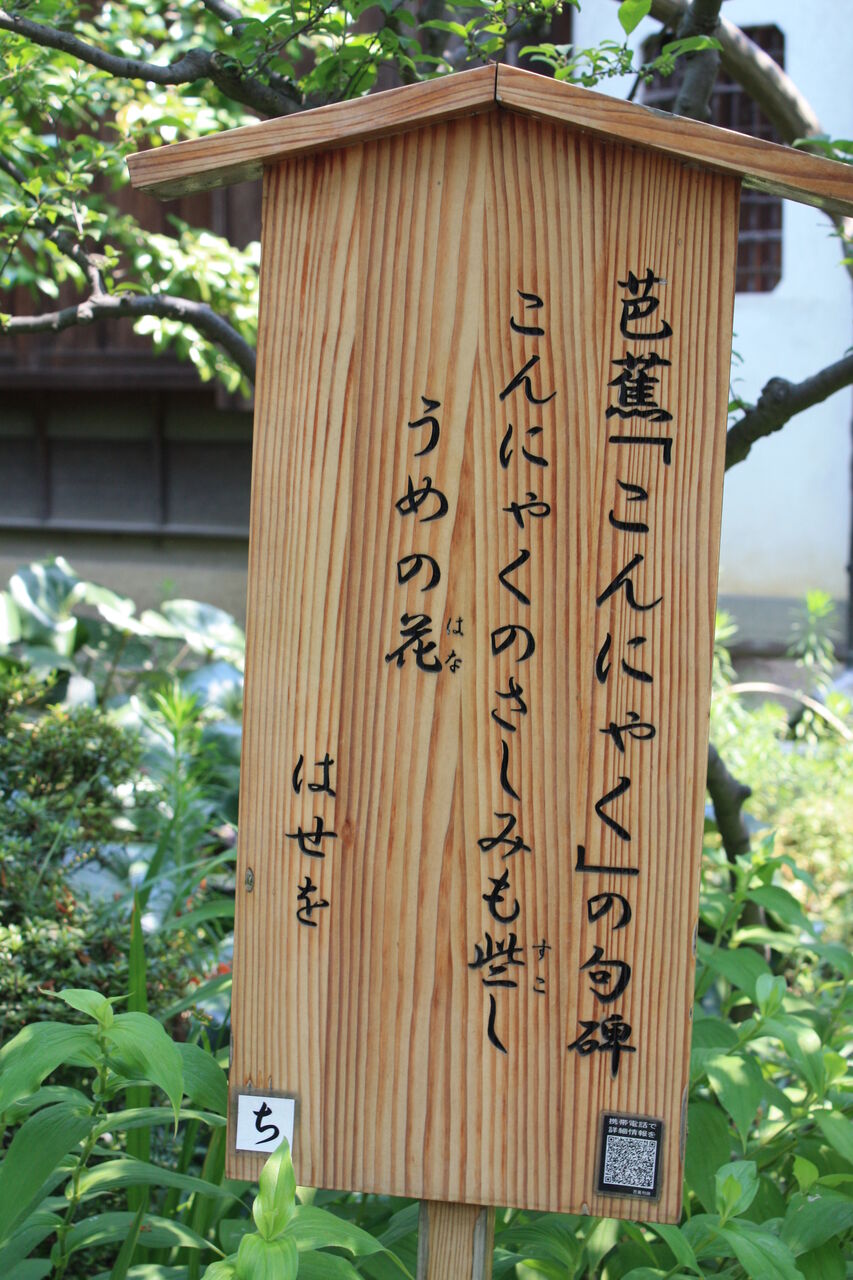 芭蕉「こんにゃく」の句碑
こんにゃくのさしみも些し
すこ
うめの花
はな
はせを
ち
携帯電話で
詳細情報を